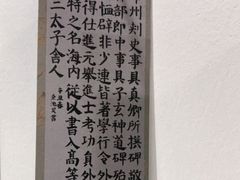 州刺史事具真卿所撰碑敬
部郎中事具子玄神道碑殆
恤辟非少連皆著學行令外
得仕進元舉進士考功員外
特之名海内從以書入高等
三太子舍人